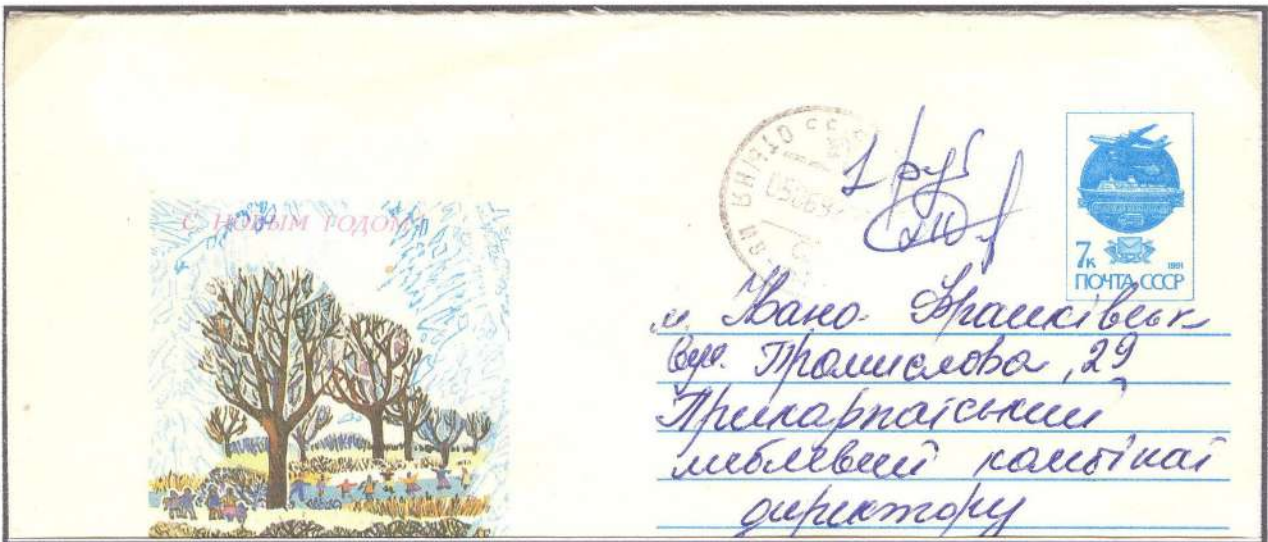 С НОВЫМ ГОДОМ!
1 руб
7к
1991
ПОЧТА СССР
м. Івано-Франківськ
вул. Промислова, 29
Прикарпатський
меблевий комбінат
директору